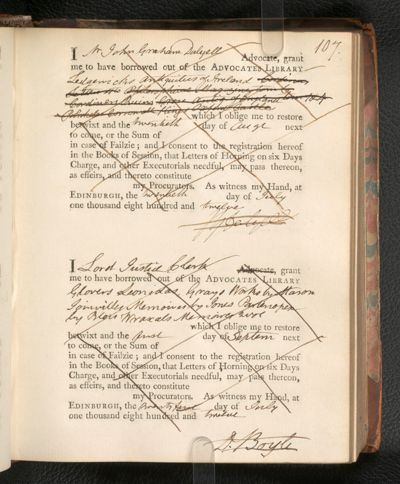 107.
I Mr John Graham Dalyell Advocate, grant
me to have borrowed out of the ADVOCATES LIBRARY
Ledgewichs Antiquities of Ireland
which I oblige me to restore
betwixt and the twentieth day of Augt next
to come, or the Sum of
in case of Failzie; and I consent to the registration hereof
in the Books of Session, that Letters of Horning on six Days
Charge, and other Executorials needful, may pass thereon,
as effeirs, and thereto constitute
my Procurators. As witness my Hand, at
EDINBURGH, the twentieth day of July
one thousand eight hundred and twelve
I Lord Justice Clerk Advocate, grant
me to have borrowed out of the ADVOCATES LIBRARY
Glovers Leonidas Grays Works by Mason
Joinvilles Memoires by Jones
by Blois Wraxals Memoirs
which I oblige me to restore
betwixt and the first day of Septem next
to come, or the Sum of
in case of Failzie; and I consent to the registration hereof
in the Books of Session, that Letters of Horning on six Days
Charge, and other Executorials needful, may pass thereon,
as effeirs, and thereto constitute
my Procurators. As witness my Hand, at
EDINBURGH, the day of July
one thousand eight hundred and twelve
D. Boyle